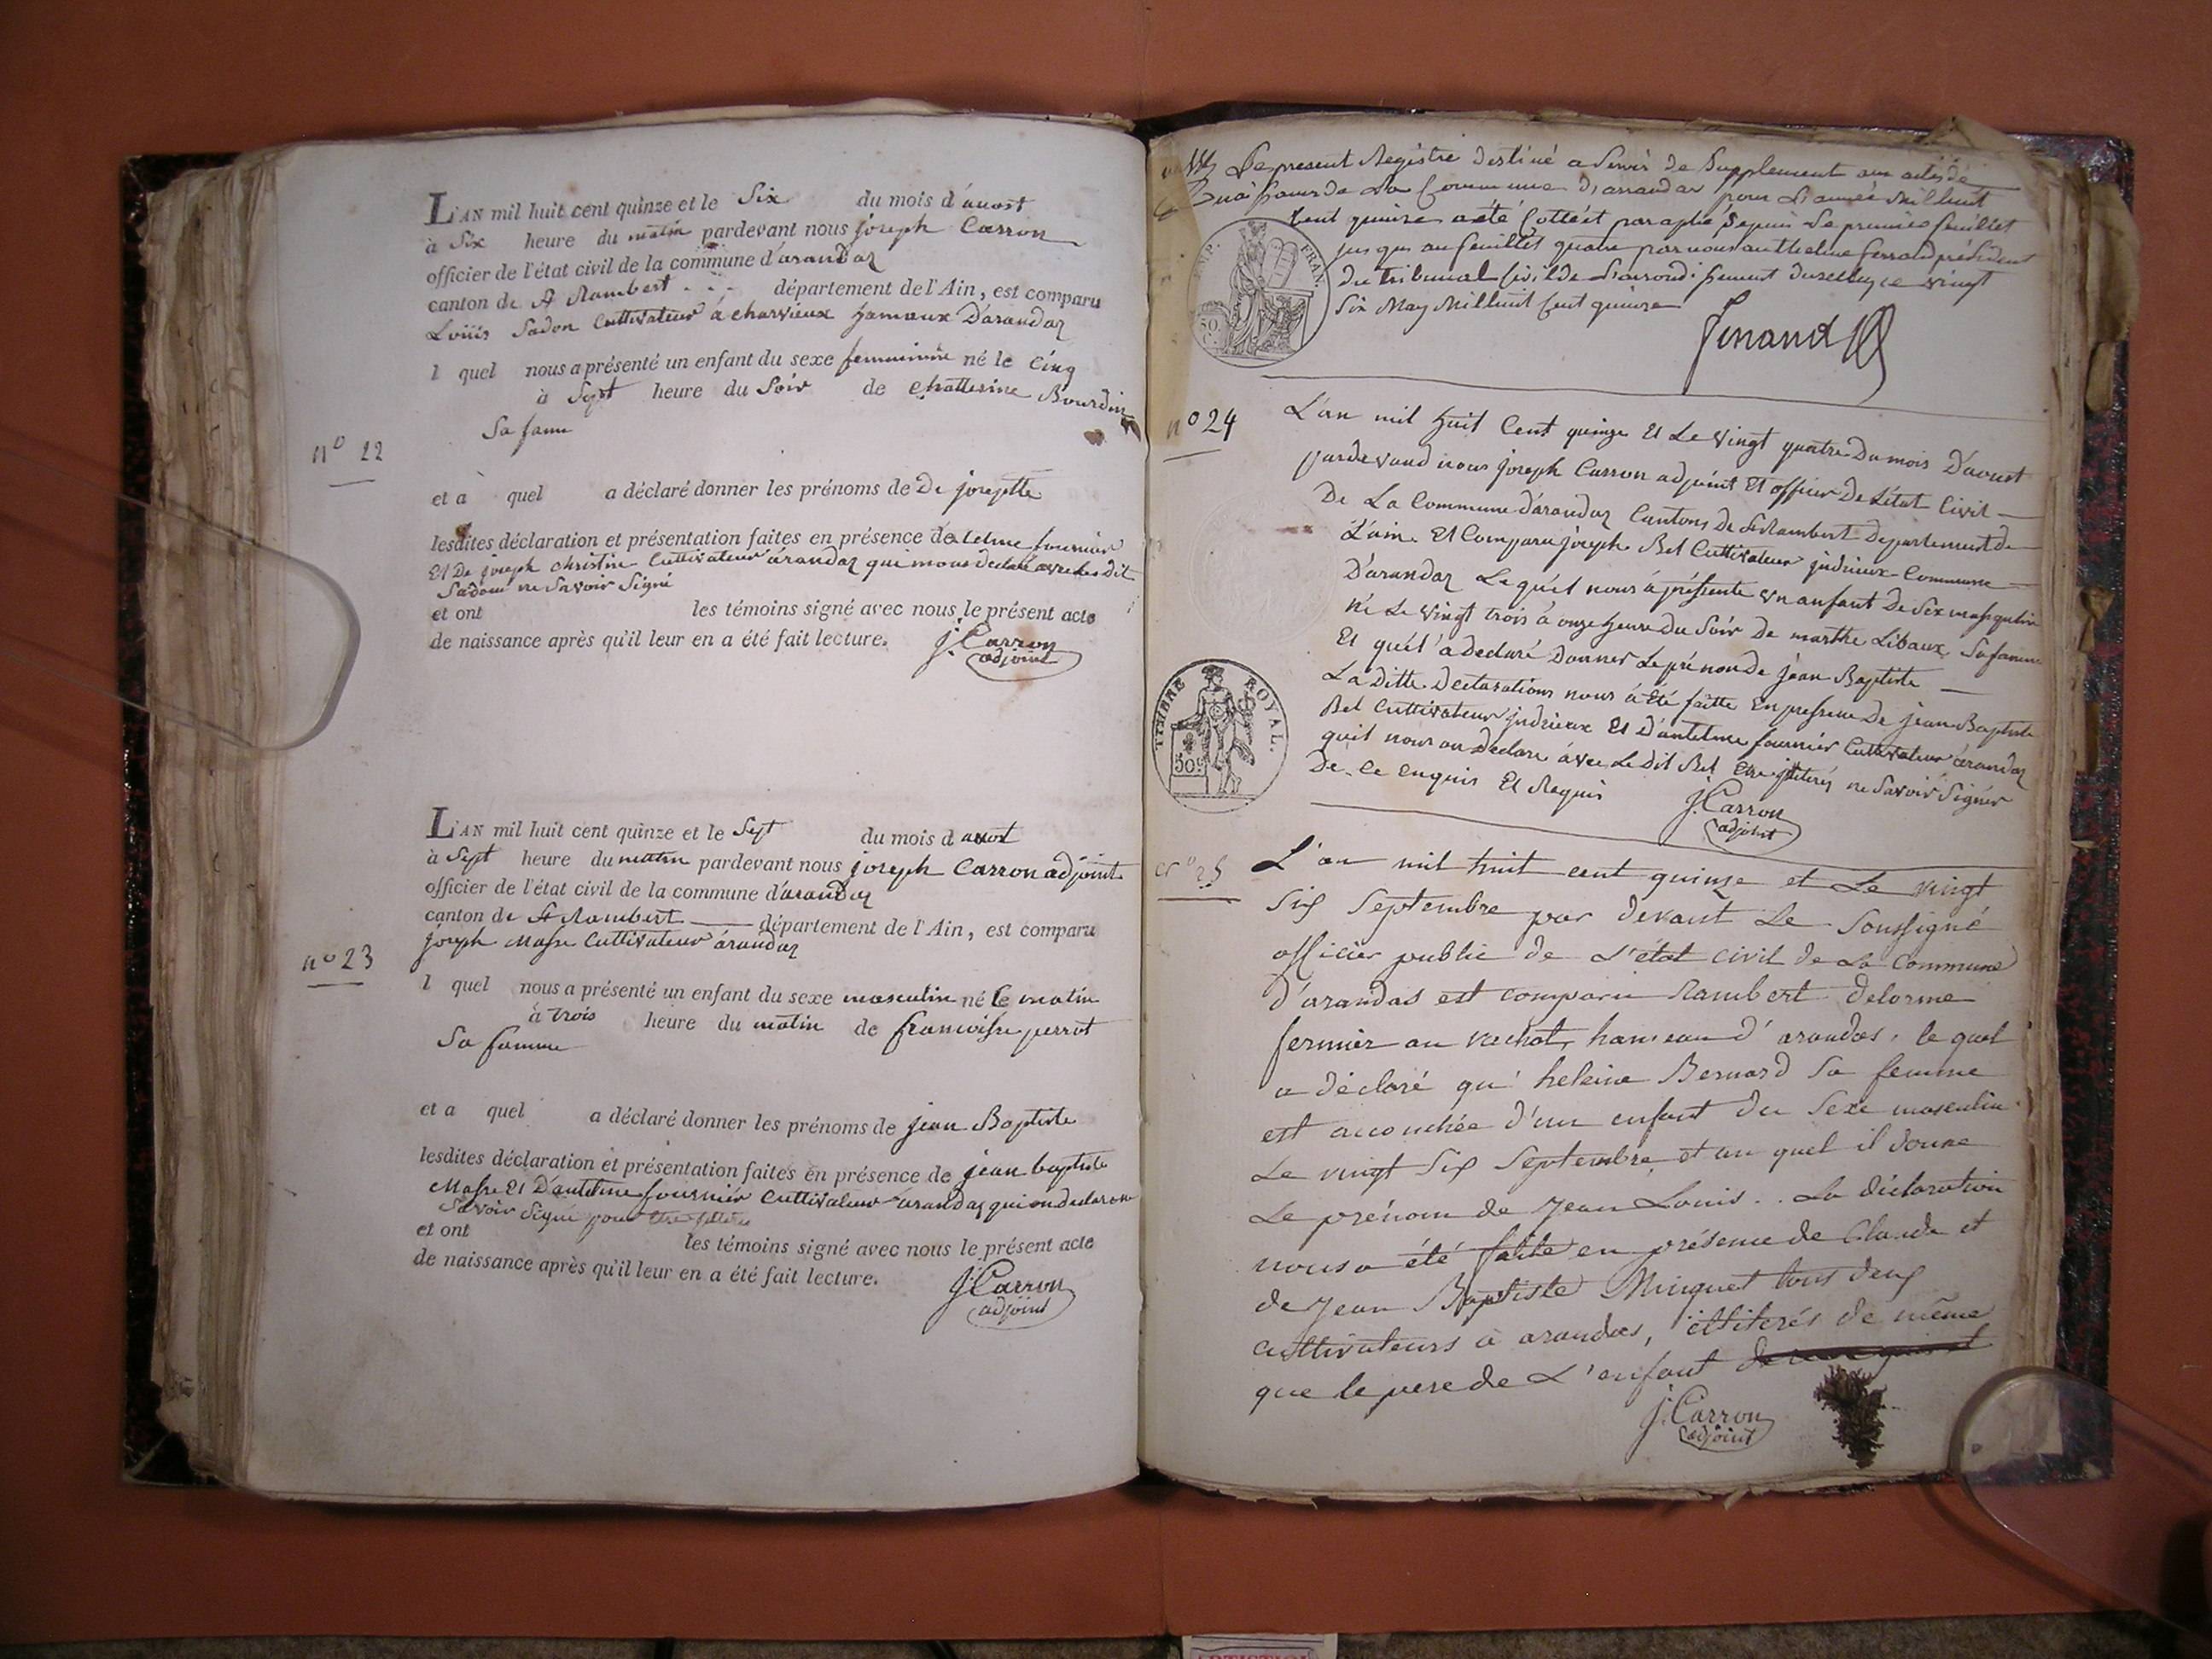 L'AN mil huit cent quinze et le Six du mois d'auost
à Six heure du matin pardevant nous joseph Carron
officier de l'état civil de la commune d'arandaz
canton de St Rambert . . . département de l'Ain, est comparu
Loüis Sadon Cultivateur à charvieux hamaux D'arandaz
l quel nous a présenté un enfant du sexe femminine né le Cinq
à Sept heure du Soir de Chatterine Bourdin
Sa fame
n° 22
et à quel a déclaré donner les prénoms de De josephtte
lesdites déclaration et présentation faites en présence de telme fournier
Et De joseph Christin Cultivateur arandaz qui nous declare avec les dit
Sadon ne Savoir Signé
et ont les témoins signé avec nous le présent acte
de naissance après qu'il leur en a été fait lecture.
J. Carron
adjoint
L'AN mil huit cent quinze et le Sept du mois d auost
à Sept heure du matin pardevant nous joseph Carron adjoint
officier de l'état civil de la commune d'arandaz
canton de St Rambert département de l'Ain, est comparu
joseph Masse Cultivateur àrandaz
n° 23
l quel nous a présenté un enfant du sexe masculin né le matin
à trois heure du matin de francoisse perrot
Sa famme
et a quel a déclaré donner les prénoms de jean Baptiste
lesdites déclaration et présentation faites en présence de jean baptiste
Masse Et D'antelme fournier Cultivateur arandaz qui on declare ne
Savoir Signé pour être
et ont les témoins signé avec nous le présent acte
de naissance après qu'il leur en a été fait lecture.
J. Carron
adjoint
Le present Registre destiné a Servir de Supplement aux actes de
Naissances de La Commune d'arandas pour L'année Mil huit
Cent quinze a été Cotté et paraphé depuis Le premier feuillet
jusques au feuillet quatre par nous anthelme ferrand président
du tribunal Civil de L'arrondissement de Belley ce vingt
Six May Mil huit Cent quinze
ferrand
EMP. FRAN.
50 C.
n° 24
L'an mil huit Cent quinze Et Le Vingt quatre Du mois D'aoust
pardevand nous joseph Carron adjoint Et officier De L'état Civil
De La Commune d'arandaz Cantons De St Rambert Departement de
L'ain Et Comparu joseph Bel Cultivateur jndrieux Commune
D'arandaz Le quel nous à pressente un anfant De Sex masqulin
né Le Vingt trois à onze heure Du Soir De marthe Libaux Sa famme
Et quel à Declaré Donner Le prénon De jean Baptiste
La Ditte Declarations nous à été faitte En pressence De jean Baptiste
Bel Cultivateur jndrieux Et D'antelme fournier Cultivateur àrandaz
quil nous on Declare àvec Le Dit Bel Etre jlliterés ne Savoir Signer
De Ce Enquis Et Requis
J. Carron
adjoint
TIMBRE ROYAL.
50 C
n° 25
L'an mil huit cent quinze et Le vingt
Six Septembre par devant Le Soussigné
officier public de L'état civil de La Commune
d'arandas est comparu Rambert delorme
fermier au vachat, hameau d'arandas, le quel
a déclaré qu' heleine Bernard Sa femme
est accouchée d'un enfant du Sexe masculin
Le vingt Six Septembre, et au quel il donne
Le prénom de Jean Louis . . La déclaration
nous a été faite en présence de Claude et
de Jean Baptiste Minguet tous deux
cultivateurs à arandas, illiterés de même
que le pere de L'enfant
J. Carron
adjoint